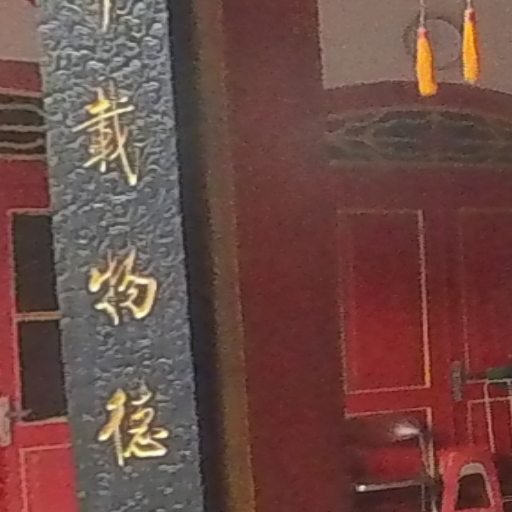 載物德